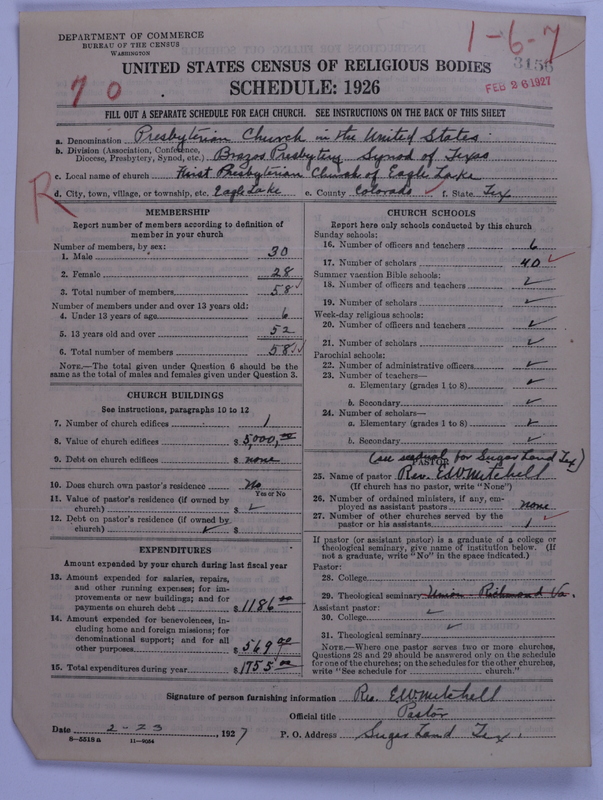 DEPARTMENT OF COMMERCE
BUREAU OF THE CENSUS
WASHINGTON
1-6-7
3156
FEB 26 1927
7 0
UNITED STATES CENSUS OF RELIGIOUS BODIES
SCHEDULE: 1926
FILL OUT A SEPARATE SCHEDULE FOR EACH CHURCH. SEE INSTRUCTIONS ON THE BACK OF THIS SHEET
a. Denomination Presbyterian Church in the United States
b. Division (Association, Conference, Diocese, Presbytery, Synod, etc.) Brazos Presbytery Synod of Texas
c. Local name of church First Presbyterian Church of Eagle Lake
R
d. City, town, village, or township, etc. Eagle Lake e. County Colorado ✓ f. State Tex
MEMBERSHIP
Report number of members according to definition of
member in your church
Number of members, by sex:
1. Male 30
2. Female 28
3. Total number of members 58 ✓
Number of members under and over 13 years old:
4. Under 13 years of age 6
5. 13 years old and over 52
6. Total number of members 58 ✓✓
NOTE.—The total given under Question 6 should be
same as the total of males and females given under Question 3.
CHURCH BUILDINGS
See instructions, paragraphs 10 to 12
7. Number of church edifices 1
8. Value of church edifices $ 5,000.00
9. Debt on church edifices $ none
10. Does church own pastor's residence No
Yes or No
11. Value of pastor's residence (if owned by
church) $ ✓
12. Debt on pastor's residence (if owned by
church) ✓ $
EXPENDITURES
Amount expended by your church during last fiscal year
13. Amount expended for salaries, repairs,
and other running expenses; for im-
provements or new buildings; and for
payments on church debt $ 1186.00
14. Amount expended for benevolences, in-
cluding home and foreign missions; for
denominational support; and for all
other purposes $ 569.00
15. Total expenditures during year $ 1755.00
CHURCH SCHOOLS
Report here only schools conducted by this church
Sunday schools:
16. Number of officers and teachers 6
17. Number of scholars 40 ✓
Summer vacation Bible schools:
18. Number of officers and teachers ✓
19. Number of scholars ✓
Week-day religious schools:
20. Number of officers and teachers ✓
21. Number of scholars ✓
Parochial schools:
22. Number of administrative officers ✓
23. Number of teachers—
a. Elementary (grades 1 to 8) ✓
b. Secondary ✓
24. Number of scholars—
a. Elementary (grades 1 to 8) ✓
b. Secondary ✓
for Sugar Land Tex)
PASTOR
25. Name of pastor Rev. E W Mitchell
(If church has no pastor, write "None")
26. Number of ordained ministers, if any, em-
ployed as assistant pastors none
27. Number of other churches served by the
pastor or his assistants 1 ✓
If pastor (or assistant pastor) is a graduate of a college or
theological seminary, give name of institution below. (If
not a graduate, write "No" in the space indicated.)
Pastor:
28. College
29. Theological seminary Union - Richmond Va.
Assistant pastor:
30. College ✓
31. Theological seminary ✓
NOTE.—Where one pastor serves two or more churches,
Questions 28 and 29 should be answered only on the schedule
for one of the churches; on the schedules for the other churches,
write "See schedule for church."
Signature of person furnishing information Rev. E W Mitchell
Official title Pastor
Date 2-23, 1927
P. O. Address Sugar Land Tex.
8-5518 a 11-9034